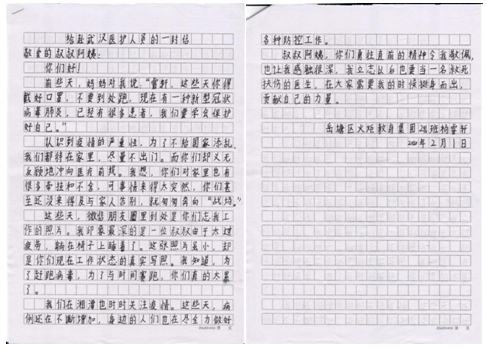 给赴武汉医护人员的一封信
敬爱的叔叔阿姨:
你们好!
前些天,妈妈对我说:“雷轩,这些天你得
戴好口罩,不要到处跑,现在有一种新型冠状
病毒肺炎,已经有很多患者,我们要学会保护
好自己。”
认识到疫情的严重性,为了不给国家添乱,
我们都待在家里,尽量不出门。而你们却义无
反顾地冲向医疗前线。我想,你们对家里也有
很多牵挂和不舍,可事情来得太突然,你们甚
至还没来得及与家人告别,就匆匆奔向“战场”。
这些天,微信朋友圈里到处是你们忘我工
作的照片。我印象最深的是一位叔叔由于太过
疲劳,躺在椅子上睡着了。这张照片虽小,却
是你们现在工作状态的真实写照。我知道,为
了赶跑病毒,为了与时间赛跑,你们真的太累
了。
我们在湘潭也时时关注疫情。这些天,病
例还在不断增加,身边的人们也在尽全力做好
各种防控工作。
叔叔阿姨,你们勇往直前的精神令我敬佩,
也让我感触很深。我立志以后也要当一名救死
扶伤的医生,在大家需要我的时候挺身而出,
贡献自己的力量。
岳塘区火炬教育集团 班杨雷轩
2020年2月1日